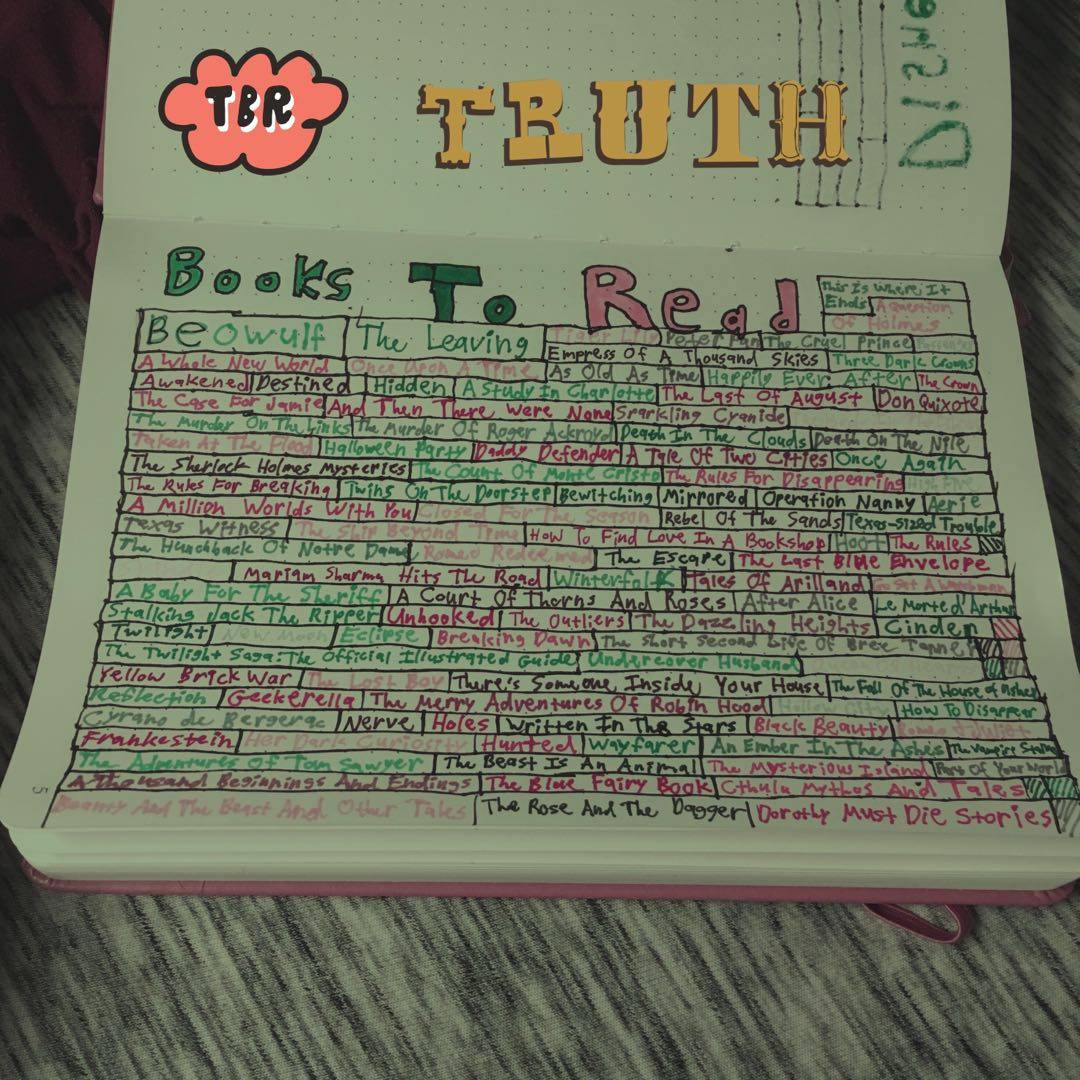 TBR TRUTH
Disne
Books To Read
This Is Where It Ends A Question Of Holmes
Beowulf The Leaving Tiger Lily Peter Pan The Cruel Prince
Empress Of A Thousand Skies Three Dark Crowns
A Whole New World Once Upon A Time As Old As Time Happily Ever After The Crown
Awakened Destined Hidden A Study In Charlotte The Last Of August Don Quixote
The Case For Jamie And Then There Were None Sparkling Cyanide
The Murder On The Links The Murder Of Roger Ackroyd Death In The Clouds Death On The Nile
Taken At The Flood Halloween Party Daddy Defender A Tale Of Two Cities Once Again
The Sherlock Holmes Mysteries The Count Of Monte Cristo The Rules For Disappearing
The Rules For Breaking Twins On The Doorstep Bewitching Mirrored Operation Nanny Aerie
A Million Worlds With You Closed For The Season Rebel Of The Sands Texas-Sized Trouble
Texas Witness The Ship Beyond Time How To Find Love In A Bookshop Hoot The Rules
The Hunchback Of Notre Dame Romeo Redeemed The Escape The Last Blue Envelope
Mariam Sharma Hits The Road Winterfolk Tales Of Arilland Go Set A Watchman
A Baby For The Sheriff A Court Of Thorns And Roses After Alice Le Morte d'Arthur
Stalking Jack The Ripper Unhooked The Outliers The Dazzling Heights Cinder
Twilight New Moon Eclipse Breaking Dawn The Short Second Life Of Bree Tanner
The Twilight Saga: The Official Illustrated Guide Undercover Husband
Yellow Brick War The Lost Boy There's Someone Inside Your House The Fall Of The House of Usher
Reflection Geekerella The Merry Adventures Of Robin Hood Hollow City How To Disappear
Cyrano de Bergerac Nerve Holes Written In The Stars Black Beauty Romeo & Juliet
Frankestein Her Dark Curiosity Hunted Wayfarer An Ember In The Ashes The Vampire Stalker
The Adventures Of Tom Sawyer The Beast Is An Animal The Mysterious Island Part Of Your World
A Thousand Beginnings And Endings The Blue Fairy Book Cthulu Mythos And Tales
Beauty And The Beast And Other Tales The Rose And The Dagger Dorothy Must Die Stories
5